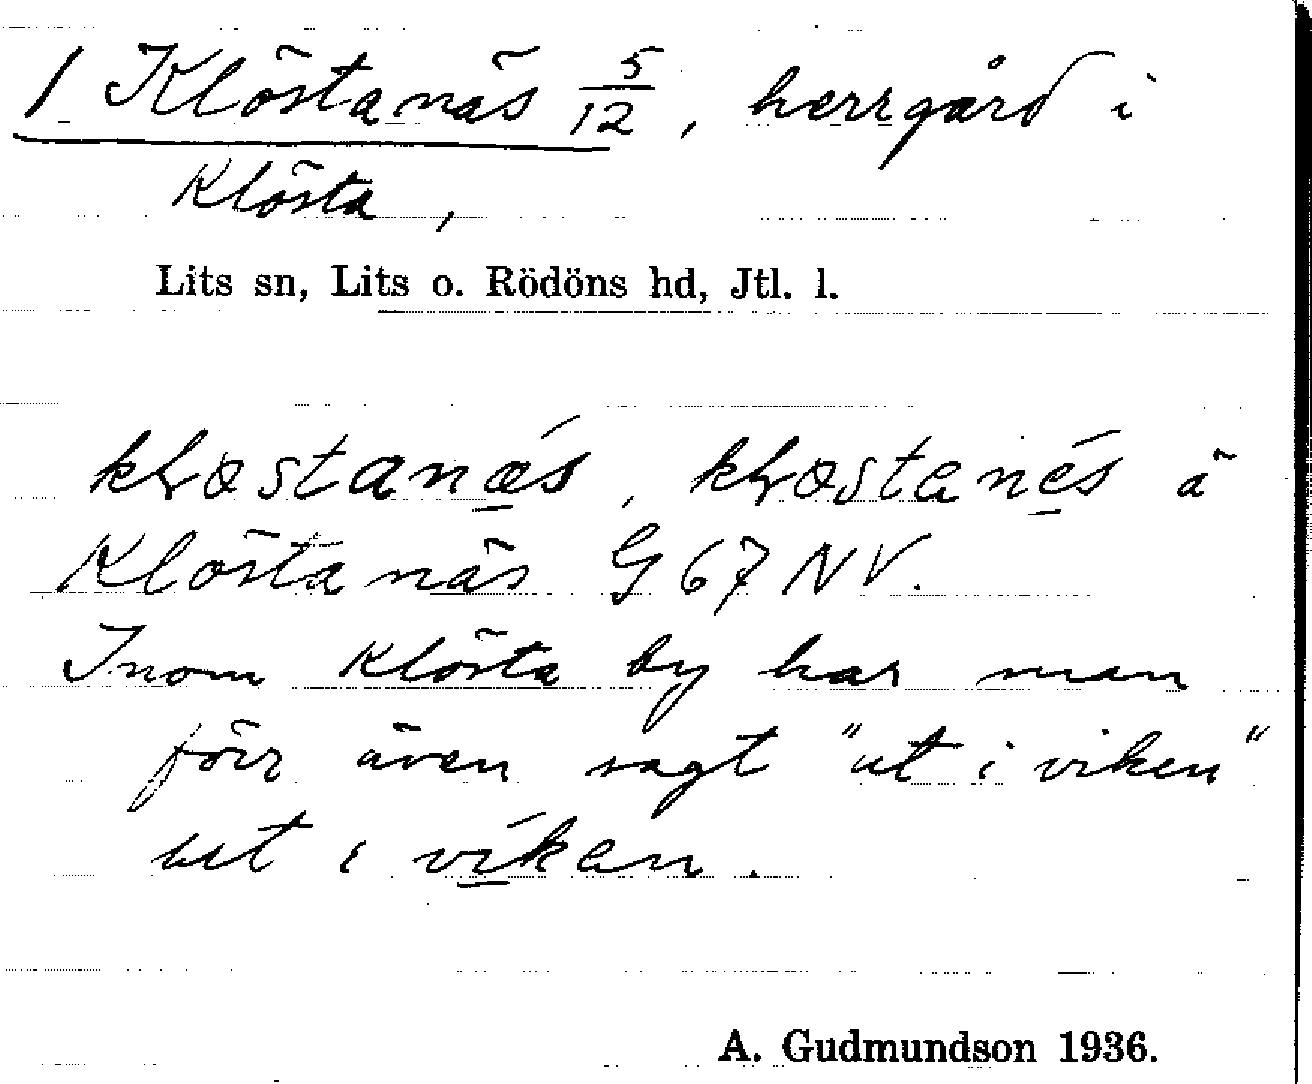 1 Klöstanäs 5/12, herrgård i
Klösta,
Lits sn, Lits o. Rödöns hd, Jtl. l.
kɫœstanǽ̲s, kɫœstané̲s ä
Klöstanäs G 67 NV.
Inom Klösta by har man
förr även sagt "ut i viken"
ut i ví̲kan.
A. Gudmundson 1936.